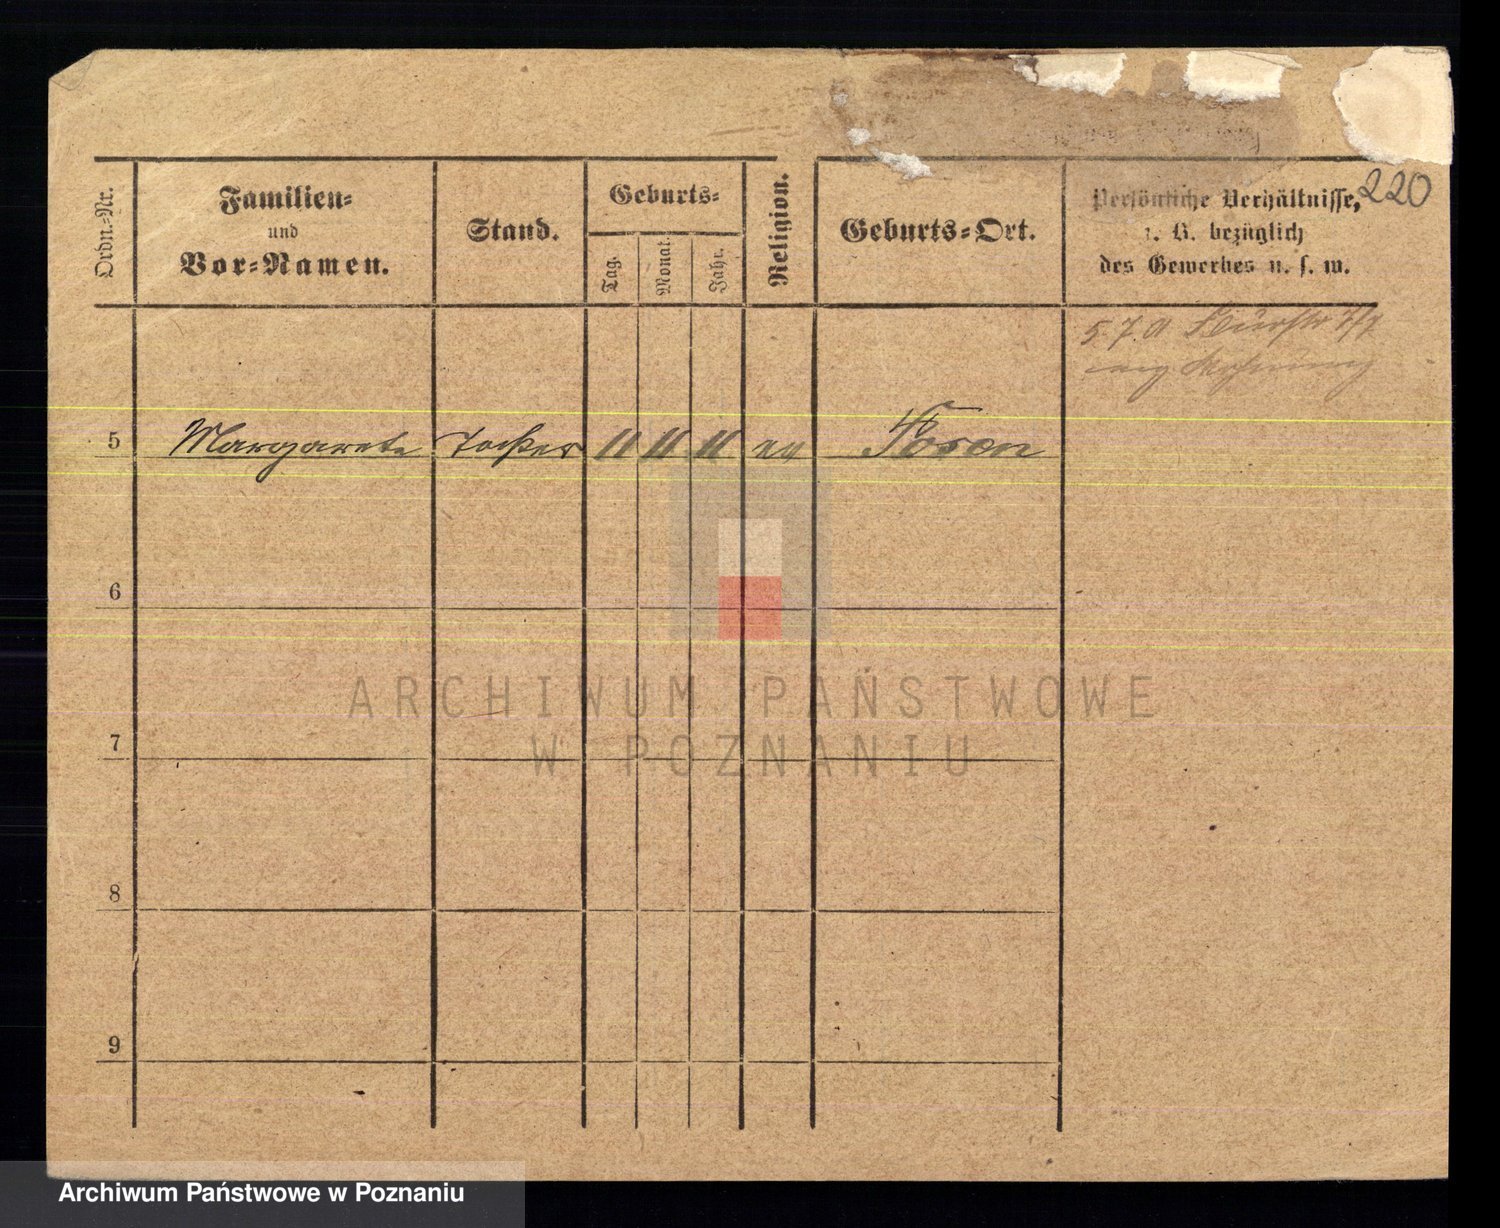 220
Ordn.-Nr.
Familien-
und
Vor-Namen.
Stand.
Geburts-
Tag.
Monat.
Jahr.
Religion.
Geburts-Ort.
Persönliche Verhältnisse,
z. B. bezüglich
des Gewerbes u. s. w.
5.7.01
5 Margarete Tochter 11 11 11 ev Posen
6
7
8
9
ARCHIWUM PAŃSTWOWE
W POZNANIU
Archiwum Państwowe w Poznaniu